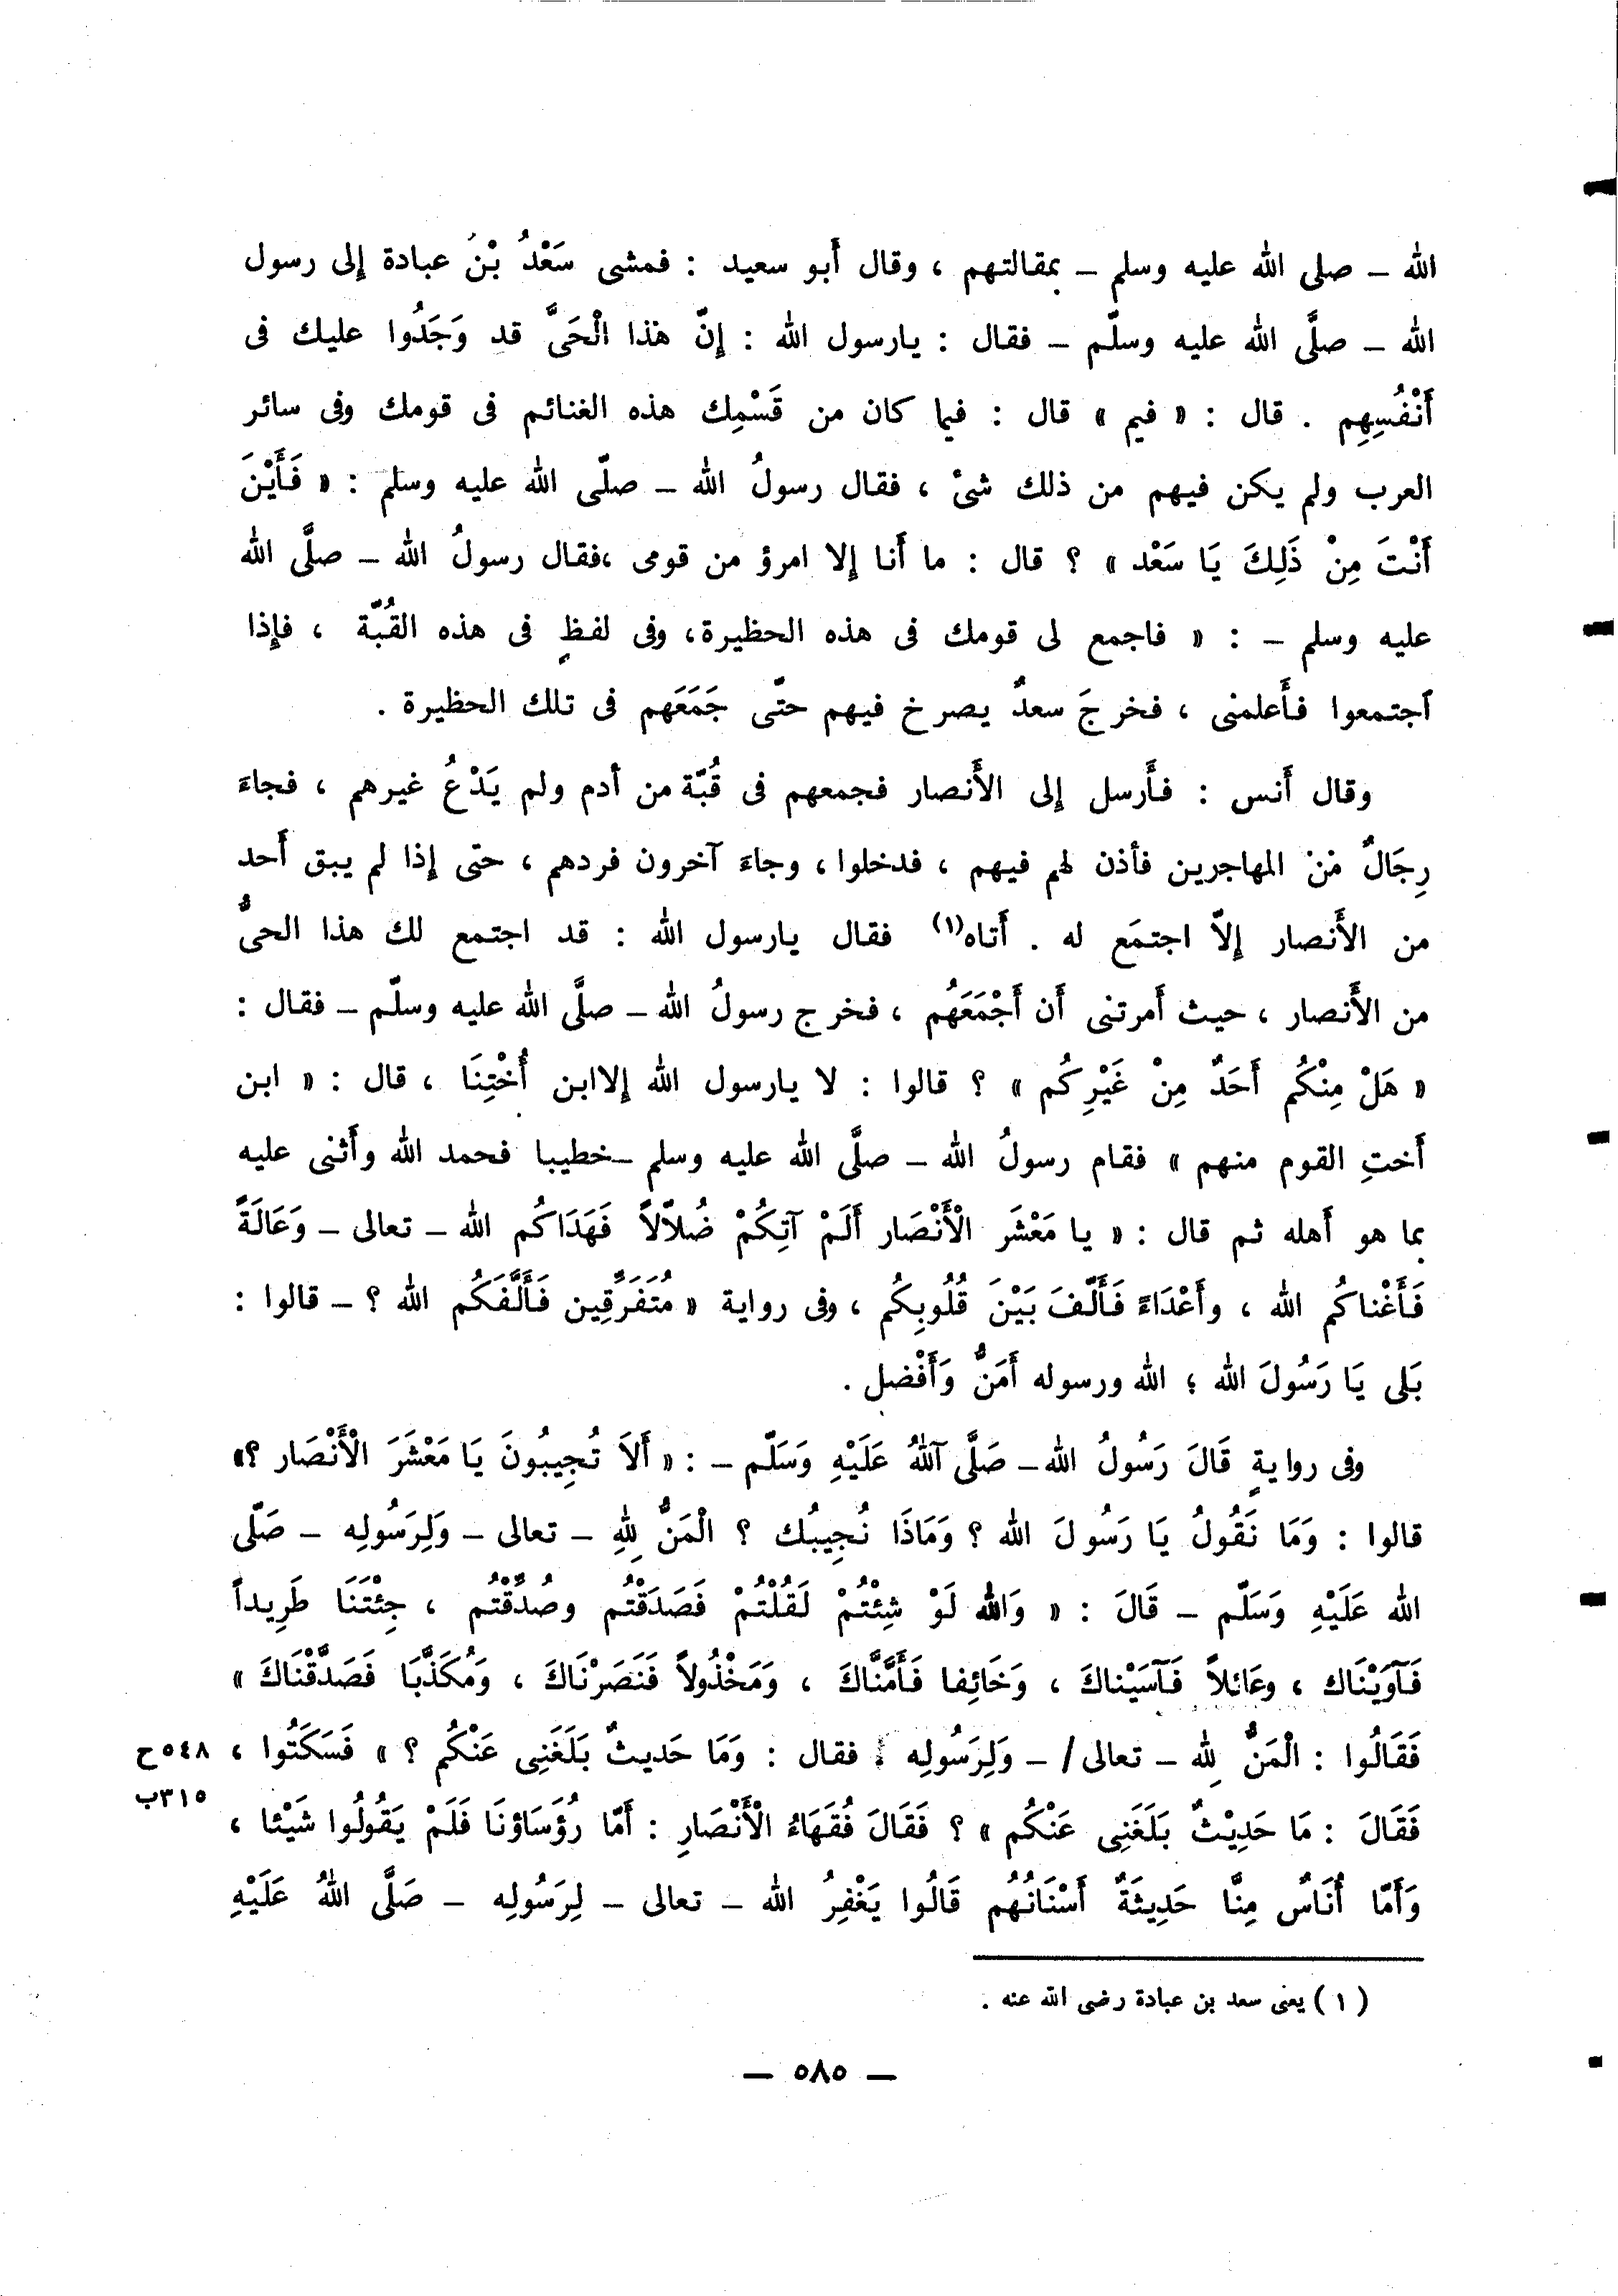 الله – صلى الله عليه وسلم – بمقالتهم ، وقال أَبو سعيد : فمشى سَعْدُ بْنُ عبادة إِلى رسول
الله – صلَّى الله عليه وسلّم – فقال : يارسول الله : إِنّ هٰذا الْحَىَّ قد وَجَدُوا عليك فى
أَنْفُسِهِم . قال : « فيم » قال : فيما كان من قَسْمِك هذه الغنائم فى قومك وفى سائر
العرب ولم يكن فيهم من ذلك شىْ ، فقال رسولُ الله – صلّى الله عليه وسلم : « فَأَيْنَ
أَنْتَ مِنْ ذَلِكَ يَا سَعْد » ؟ قال : ما أَنا إِلا امرؤ من قومى ،فقال رسولُ الله – صلَّى الله
عليه وسلم – : « فاجمع لى قومك فى هذه الحظيرة، وفى لفظٍ فى هذه القُبّة ، فإِذا
آجتمعوا فأَعلمنى ، فخرجَ سعدٌ يصرخ فيهم حتّى جَمَعَهم فى تلك الحظيرة .
وقال أَنس : فأَرسل إِلى الأَنصار فجمعهم فى قُبّة من أدم ولم يَدْعُ غيرهم ، فجاءَ
رِجَالٌ مْنْ المهاجرين فأذن لهم فيهم ، فدخلوا ، وجاءَ آخرون فردهم ، حتى إِذا لم يبق أَحد
من الأَنصار إِلاّ اجتمَع له . أَتاه(١) فقال يارسول الله : قد اجتمع لك هذا الحىُّ
من الأَنصار ، حيث أَمرتنى أَن أَجْمَعَهُم ، فخرج رسولُ الله – صلَّى الله عليه وسلّم – فقال :
« هَلْ مِنْكُم أَحَدٌ مِنْ غَيْرِكُم » ؟ قالوا : لا يارسول الله إِلاابن أُخْتِنَا ، قال : « ابن
أَختِ القوم منهم » فقام رسولُ الله – صلَّى الله عليه وسلم –خطيبا فحمد الله وأَثنى عليه
بما هو أَهله ثم قال : « يا مَعْشَر الْأَنْصَار أَلَمْ آتِكُمْ ضُلاّلاً فَهَدَاكُم الله – تعالى – وَعَالَةً
فَأَغْناكُم الله ، وأَعْدَاءً فَأَلَّفَ بَيْنَ قُلُوبِكُم ، وفى رواية « مُتَفَرِّقِين فَأَلَّفَكُم الله ؟ – قالوا :
بَلى يَا رَسُولَ الله ؛ الله ورسوله أَمَنُّ وَأَفْضل .
وفى روايةٍ قَالَ رَسُولُ الله– صَلَّى آللهُ عَلَيْهِ وَسَلّم – : « أَلَا تُجِيبُونَ يَا مَعْشَرَ الْأَنْصَار ؟»
قالوا : وَمَا نَقُولُ يَا رَسُولَ الله ؟ وَمَاذَا نُجِيبُك ؟ الْمَنُّ لِلهِ – تعالى – وَلِرَسُولِه – صَلّى
الله عَلَيْهِ وَسَلّم – قَالَ : « وَالله لَوْ شِئْتُمْ لَقُلْتُمْ فَصَدَقْتُم وصُدِّقْتُم ، جِئْتَنَا طَرِيداً
فَآوَيْنَاك ، وعَائلاً فَآسَيْناكَ ، وَخَائِفا فَأَمَّنَّاكَ ، وَمَخْذُولاً فَنَصَرْنَاكَ ، وَمُكَذَّبَا فَصَدَّقْنَاكَ »
فَقَالُوا : الْمَنُّ لِله – تعالى/ – وَلِرَسُولِه ، فقال : وَمَا حَديثٌ بَلَغَنِى عَنْكُم ؟ » فَسَكَتُوا ، ٥٤٨ح
٣١٥ب
فَقَالَ : مَا حَدِيْثٌ بَلَغَنِى عَنْكُم » ؟ فَقَالَ فُقَهَاءُ الْأَنْصَارِ : أَمّا رُؤَسَاؤنَا فَلَمْ يَقُولُوا شَيْئا ،
وَأَمّا أُنَاسٌ مِنَّا حَدِيثَةٌ أَسْنَانُهُم قَالُوا يَغْفِرُ الله – تعالى – لِرَسُولِه – صَلَّى اللهُ عَلَيْهِ
( ١ ) يعنى سعد بن عبادة رضى الله عنه .
— ٥٨٥ —